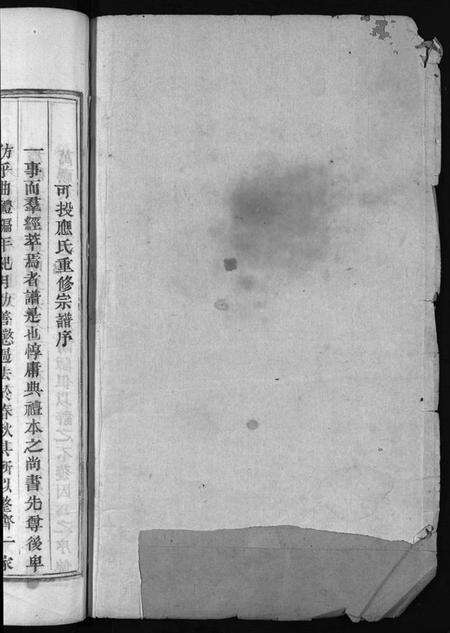 可投應氏重修宗譜序
一事而羣經萃焉者譜是也惇庸典禮本之尚書先尊後卑
仿乎曲禮編年紀月勸善懲惡法於春秋其所以整齊一家